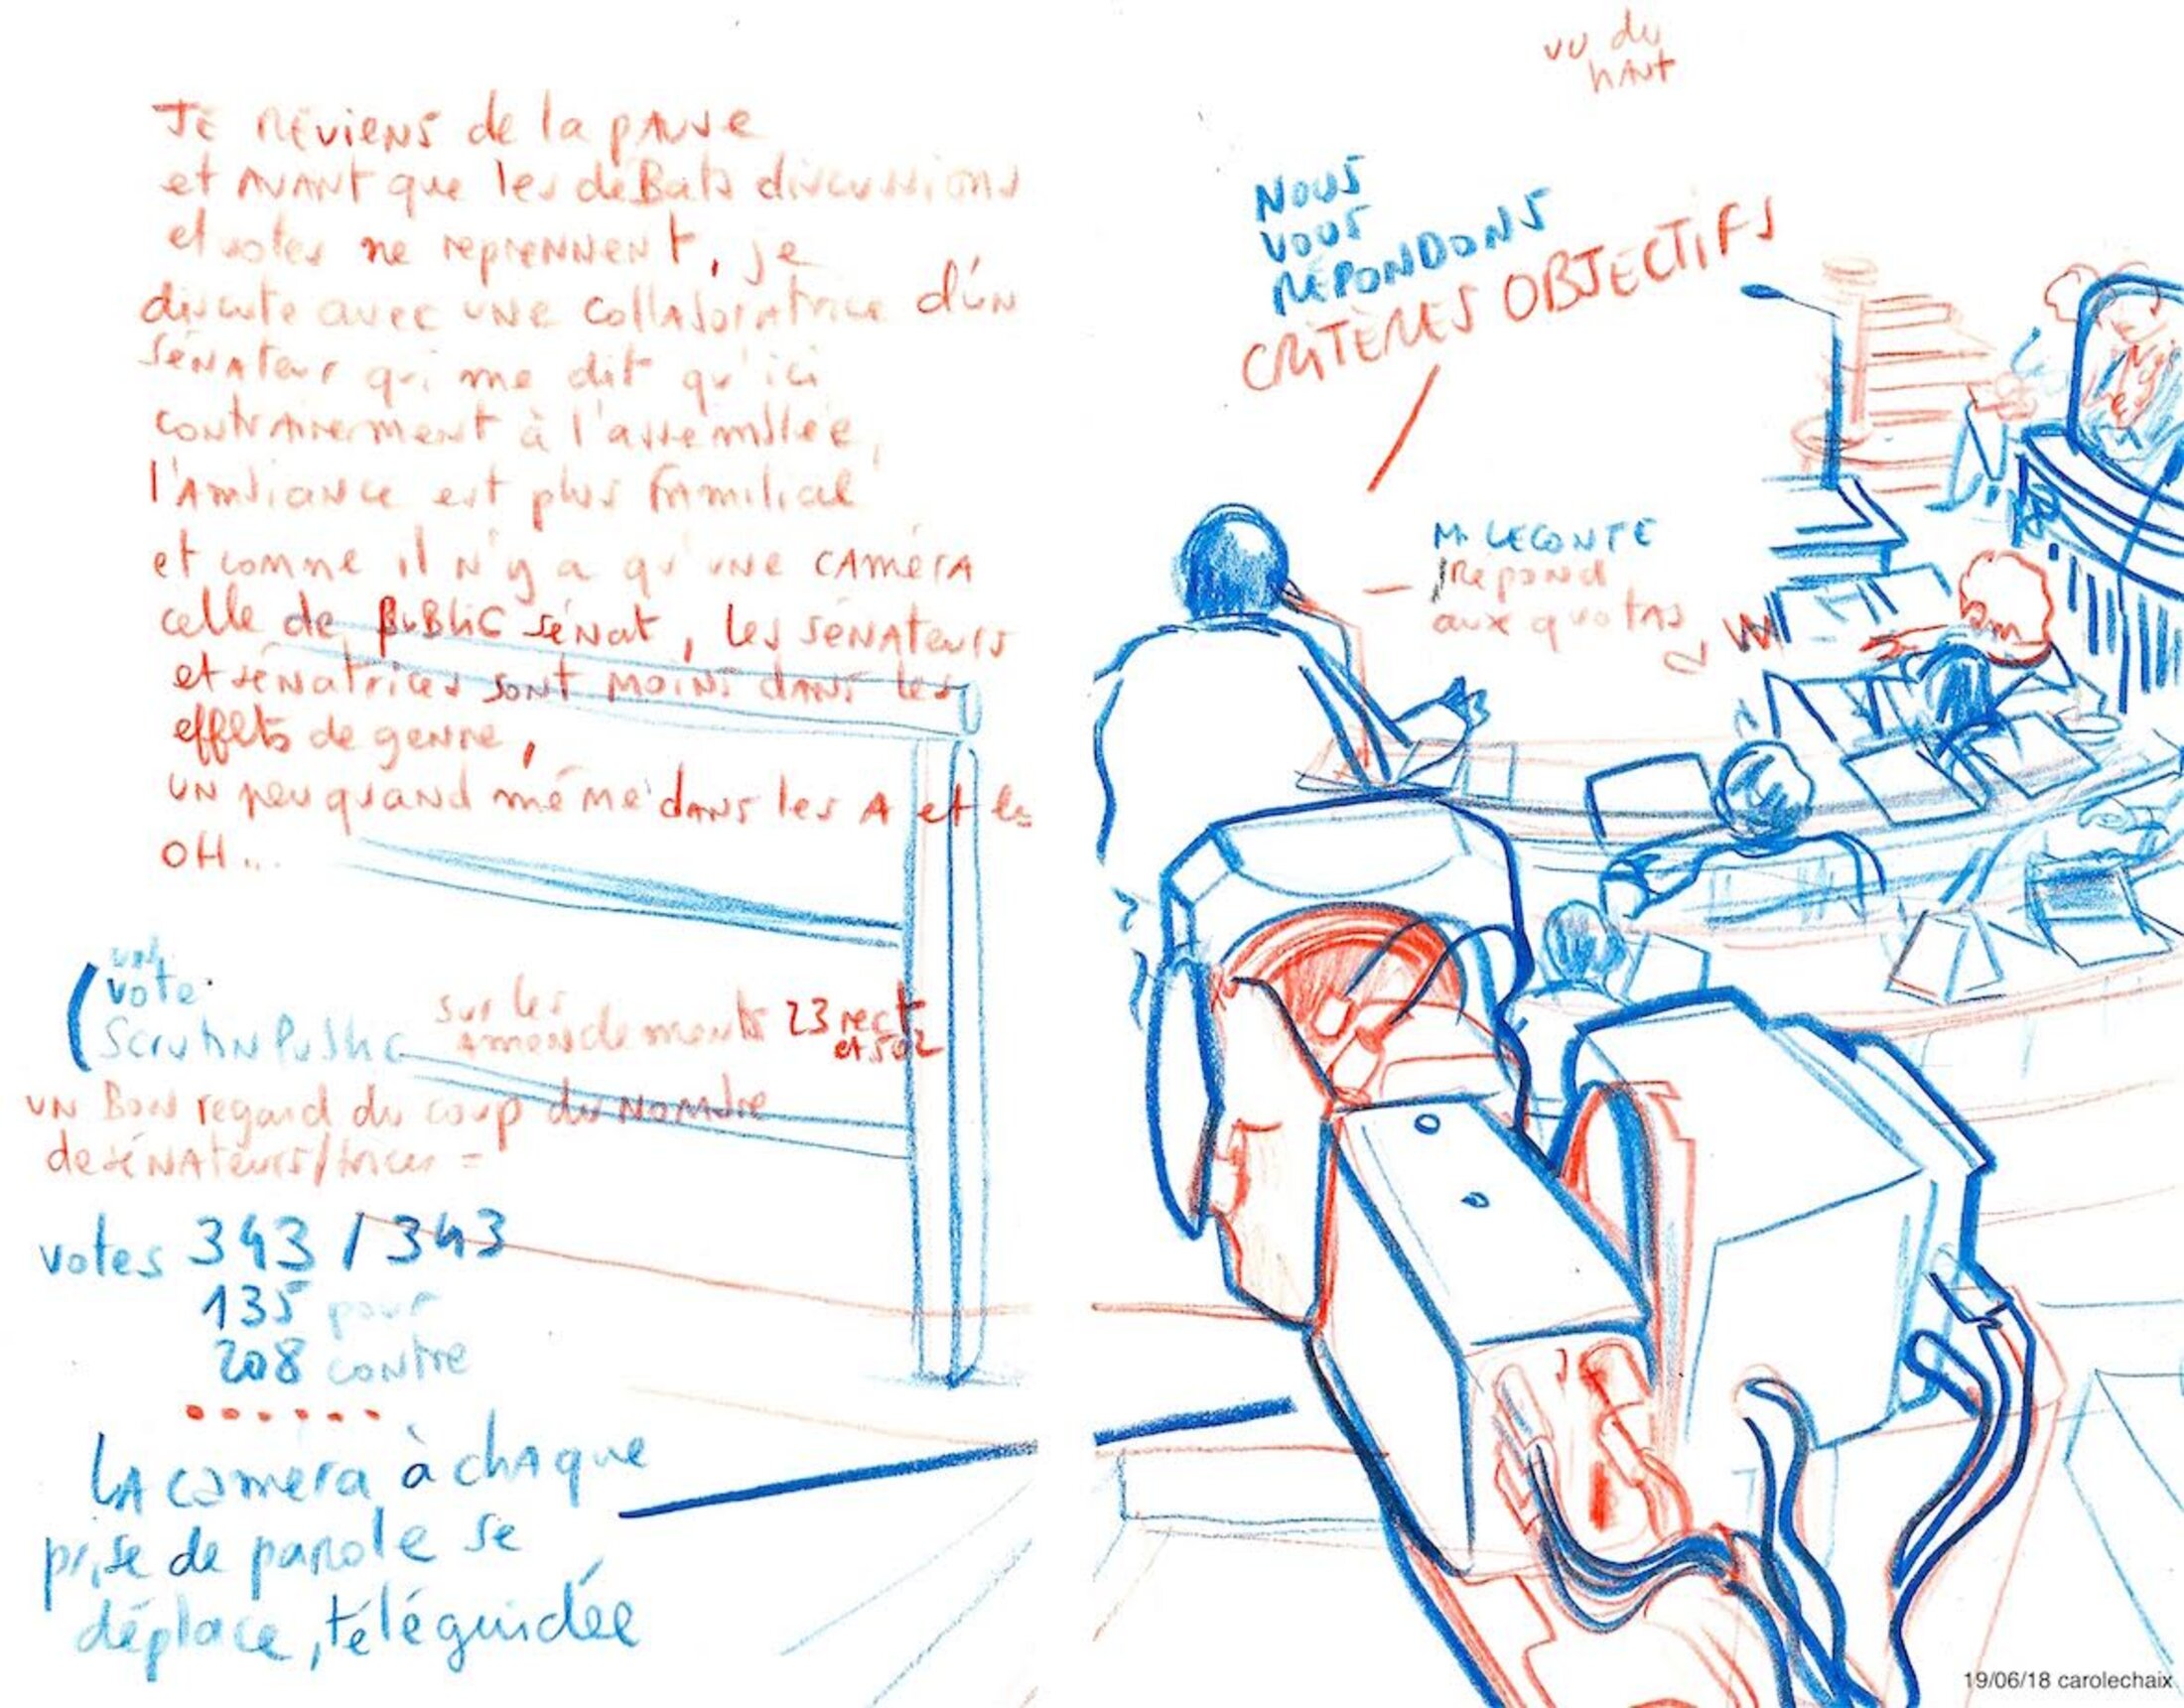 JE REVIENS de la pause
et AVANT que les débats discussions
et votes ne reprennent, je
discute avec une collaboratrice d'un
sénateur qui me dit qu'ici
contrairement à l'assemblée,
l'ambiance est plus familial
et comme il n'y a qu'une caméra
celle de public sénat, les sénateurs
et sénatrices sont moins dans les
effets de genre,
un peu quand même dans les A et les
OH...
vote
Scrutin Public sur les
amendements 23 rect
et 502
un bon regard du coup du nombre
de sénateurs/trices =
votes 343 / 343
135 pour
208 contre
......
LA caméra à chaque
prise de parole se
déplace, téléguidée
vu du
haut
NOUS
VOUS
RÉPONDONS
CRITÈRES OBJECTIFS
Mr LECONTE
Répond
aux quotas
19/06/18 carolechaix